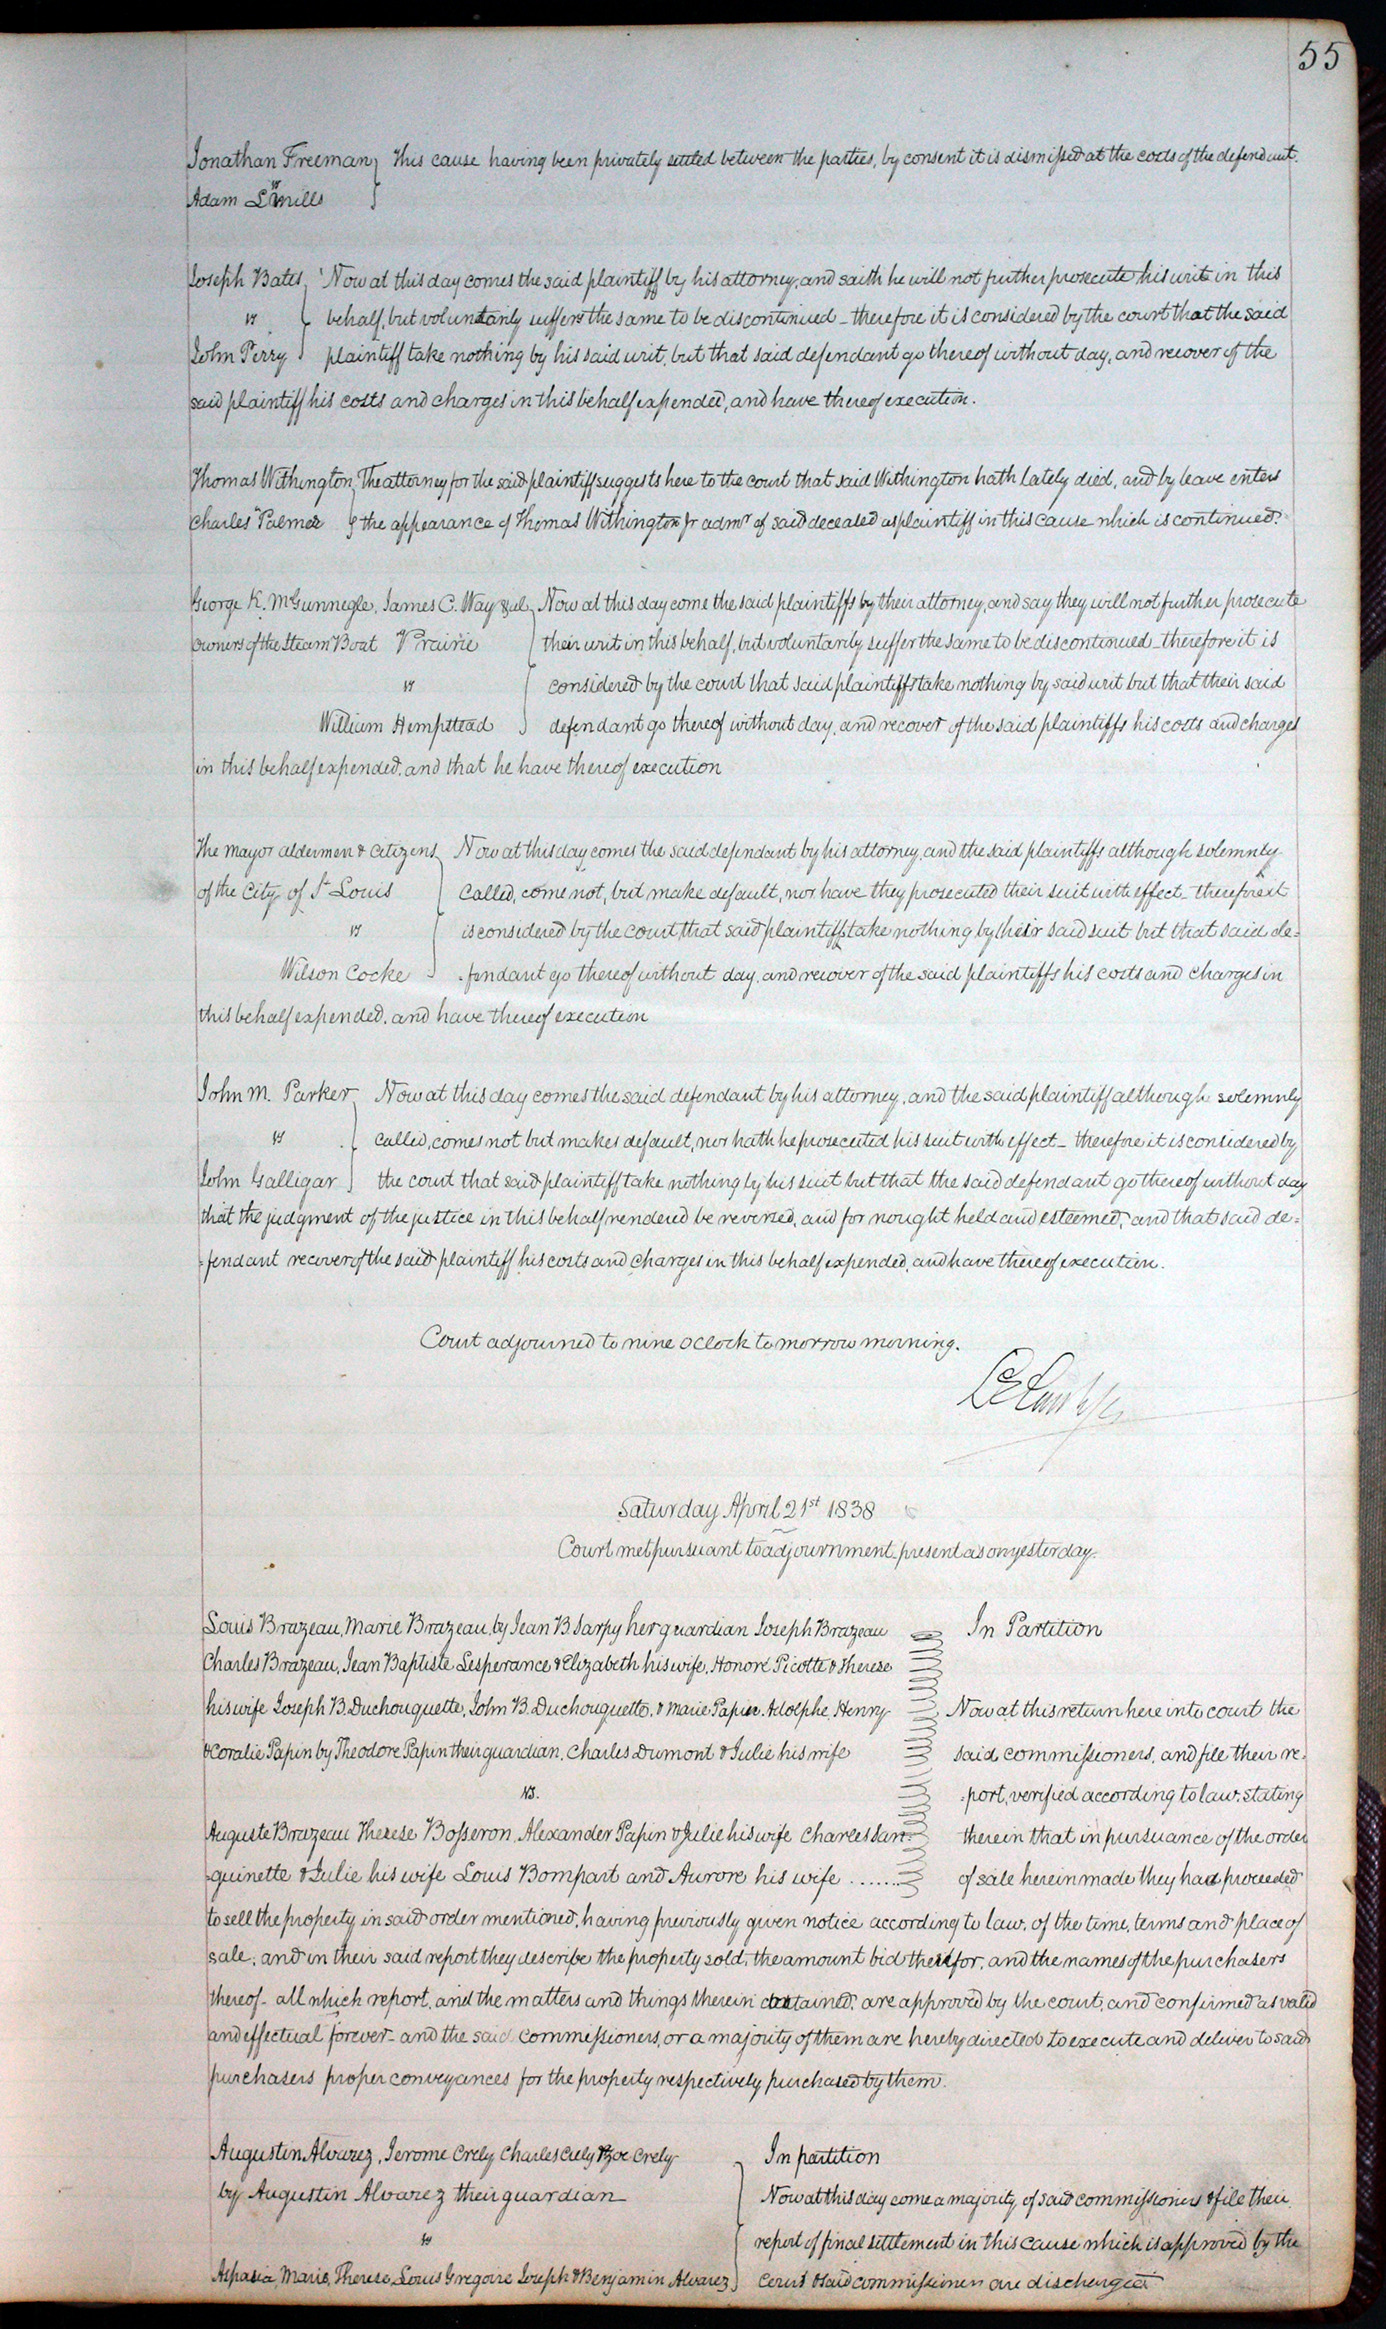 55
Jonathan Freeman } This cause having been privately settled between the parties, by consent it is dismissed at the costs of the defendant.
vs
Adam L Mills
Joseph Bates } Now at this day comes the said plaintiff by his attorney, and saith he will not further prosecute his writ in this
vs behalf, but voluntarily suffers the same to be discontinued - therefore it is considered by the court that the said
John Perry plaintiff take nothing by his said writ, but that said defendant go thereof without day, and recover of the
said plaintiff his costs and charges in this behalf expended, and have thereof execution.
Thomas Withington } The attorney for the said plaintiff suggests here to the court that said Withington hath lately died, and by leave enters
vs
Charles Palmer } the appearance of Thomas Withington Jr admr of said deceased as plaintiff in this cause which is continued.
George K. McGunnegle, James C. Way & al } Now at this day come the said plaintiffs by their attorney, and say they will not further prosecute
owners of the Steam Boat Prairie their writ in this behalf, but voluntarily suffer the same to be discontinued - therefore it is
vs considered by the court that said plaintiffs take nothing by said writ but that their said
William Hempstead defendant go thereof without day, and recover of the said plaintiffs his costs and charges
in this behalf expended, and that he have thereof execution
The mayor aldermen & citizens } Now at this day comes the said defendant by his attorney, and the said plaintiffs although solemnly
of the City of St Louis called, come not, but make default, nor have they prosecuted their suit with effect - therefore it
vs is considered by the court that said plaintiffs take nothing by their said suit but that said de=
Wilson Cocke =fendant go thereof without day, and recover of the said plaintiffs his costs and charges in
this behalf expended, and have thereof execution
John M. Parker } Now at this day comes the said defendant by his attorney, and the said plaintiff although solemnly
vs called, comes not but makes default, nor hath he prosecuted his suit with effect - therefore it is considered by
John Galligar the court that said plaintiff take nothing by his suit but that the said defendant go thereof without day
that the judgment of the justice in this behalf rendered be reversed, and for nought held and esteemed, and that said de=
=fendant recover of the said plaintiff his costs and charges in this behalf expended, and have thereof execution.
Court adjourned to nine oclock tomorrow morning.
Saturday April 21st 1838
Court met pursuant to adjournment - present as on yesterday.
Louis Brazeau, Marie Brazeau, by Jean B Sarpy her guardian Joseph Brazeau In Partition
Charles Brazeau, Jean Baptiste Lesperance & Elizabeth his wife, Honoré Picotte & Therese
his wife Joseph B. Duchouquette, John B. Duchouquette, & Marie Papin Adolphe, Henry Now at this return here into court the
& Coralie Papin by Theodore Papin their guardian, Charles Dumont & Julie his wife said commissioners, and file their re=
vs. =port, verified according to law, stating
Auguste Brazeau Therese Bosseron, Alexander Papin & Julie his wife Charles San= therein that in pursuance of the order
=quinette & Julie his wife Louis Bompart and Aurore his wife ....... of sale herein made they had proceeded
to sell the property in said order mentioned, having previously given notice according to law, of the time, terms and place of
sale; and in their said report they describe the property sold, the amount bid therefor, and the names of the purchasers
thereof - all which report, and the matters and things therein contained, are approved by the court, and confirmed as valid
and effectual forever - and the said commissioners, or a majority of them are hereby directed to execute and deliver to said
purchasers proper conveyances for the property respectively purchased by them.
Augustin Alvarez, Jerome Crely Charles Crely & Zoe Crely In partition
by Augustin Alvarez their guardian Now at this day come a majority of said commissioners & file their
vs report of final settlement in this cause which is approved by the
Aspasia, Marie, Therese, Louis Gregoire Joseph & Benjamin Alvarez court & said commissioners are discharged